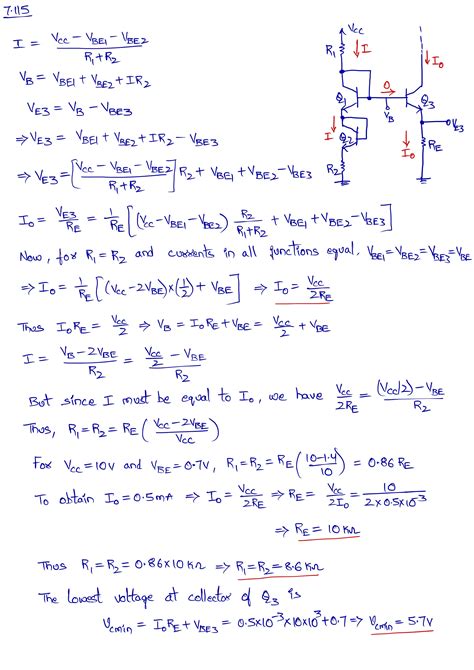 7.115
I = (V_CC − V_BE1 − V_BE2)/(R1+R2)
V_B = V_BE1 + V_BE2 + IR2
V_E3 = V_B − V_BE3
⇒ V_E3 = V_BE1 + V_BE2 + IR2 − V_BE3
⇒ V_E3 = [(V_CC − V_BE1 − V_BE2)/(R1+R2)] R2 + V_BE1 + V_BE2 − V_BE3
V_CC
R1
I
I_o
0
Q1
V_B
Q3
I
Q2
V_E3
R2
I_o
R_E
I_o = V_E3/R_E = 1/R_E [(V_CC − V_BE1 − V_BE2) R2/(R1+R2) + V_BE1 + V_BE2 − V_BE3]
Now, for R1 = R2 and currents in all junctions equal, V_BE1 = V_BE2 = V_BE3 = V_BE
⇒ I_o = 1/R_E [(V_CC − 2V_BE) × (1/2) + V_BE] ⇒ I_o = V_CC/2R_E
Thus I_oR_E = V_CC/2 ⇒ V_B = I_oR_E + V_BE = V_CC/2 + V_BE
I = (V_B − 2V_BE)/R2 = (V_CC/2 − V_BE)/R2
But since I must be equal to I_o, we have V_CC/2R_E = ((V_CC/2) − V_BE)/R2
Thus, R1 = R2 = R_E ((V_CC − 2V_BE)/V_CC)
For V_CC = 10V and V_BE = 0.7V, R1 = R2 = R_E ((10−1.4)/10) = 0.86 R_E
To obtain I_o = 0.5mA ⇒ I_o = V_CC/2R_E ⇒ R_E = V_CC/2I_o = 10/(2×0.5×10⁻³)
⇒ R_E = 10 KΩ
Thus R1 = R2 = 0.86×10 KΩ ⇒ R1 = R2 = 8.6 KΩ
The lowest voltage at collector of Q3 is
V_cmin = I_oR_E + V_BE3 = 0.5×10⁻³×10×10³+0.7 ⇒ V_cmin = 5.7V